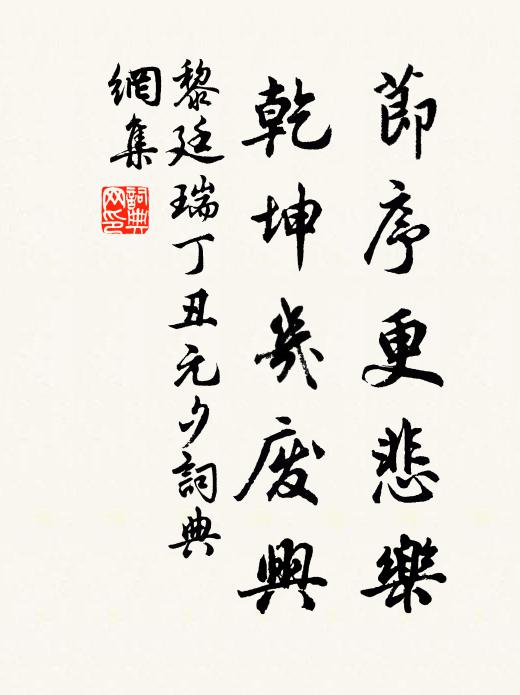 節序更悲樂
乾坤幾廢興
黎廷瑞丁丑元夕詞典
網集
詞典
網印